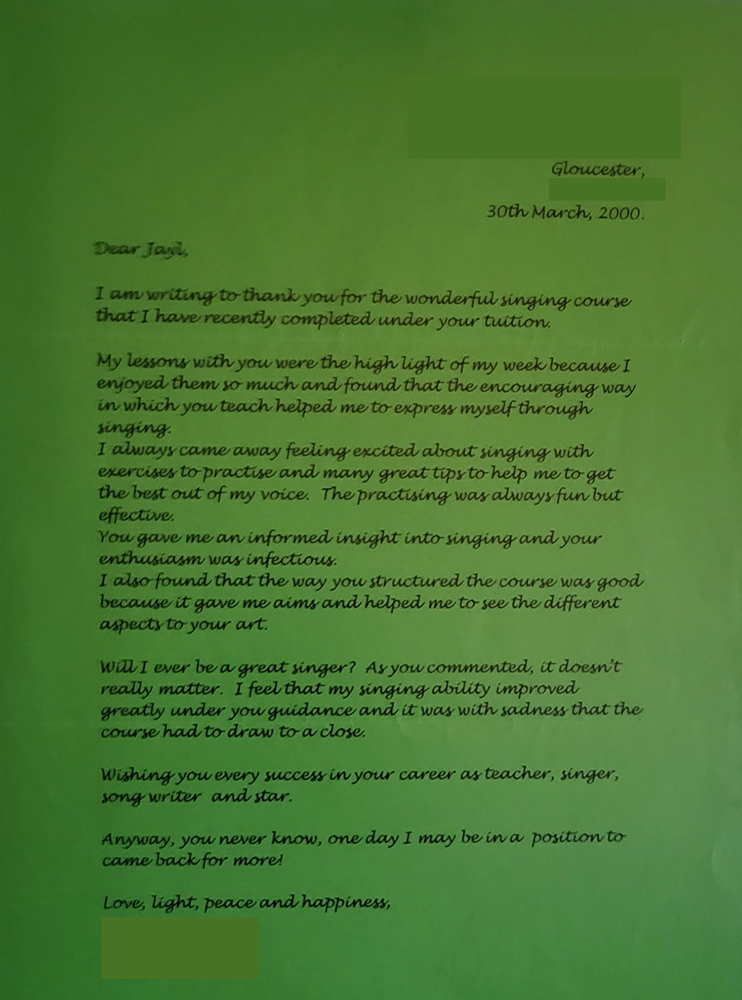 Gloucester,
30th March, 2000.
Dear Jayl,
I am writing to thank you for the wonderful singing course
that I have recently completed under your tuition.
My lessons with you were the high light of my week because I
enjoyed them so much and found that the encouraging way
in which you teach helped me to express myself through
singing.
I always came away feeling excited about singing with
exercises to practise and many great tips to help me to get
the best out of my voice. The practising was always fun but
effective.
You gave me an informed insight into singing and your
enthusiasm was infectious.
I also found that the way you structured the course was good
because it gave me aims and helped me to see the different
aspects to your art.
Will I ever be a great singer? As you commented, it doesn't
really matter. I feel that my singing ability improved
greatly under you guidance and it was with sadness that the
course had to draw to a close.
Wishing you every success in your career as teacher, singer,
song writer and star.
Anyway, you never know, one day I may be in a position to
came back for more!
Love, light, peace and happiness,